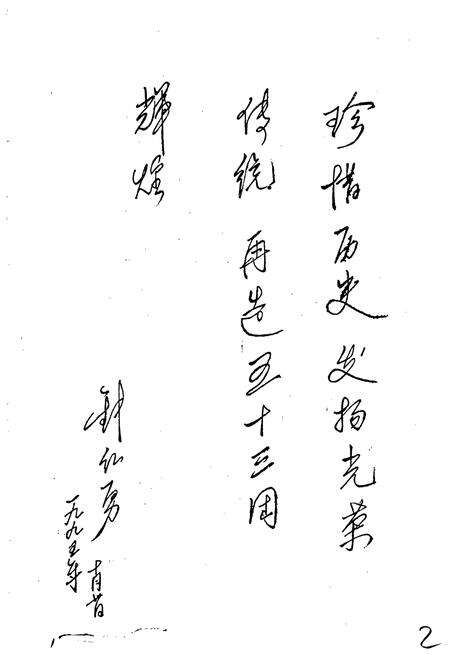 珍惜历史 发扬光荣
传统 再造五十三团
辉煌
勇
一九九五年
2